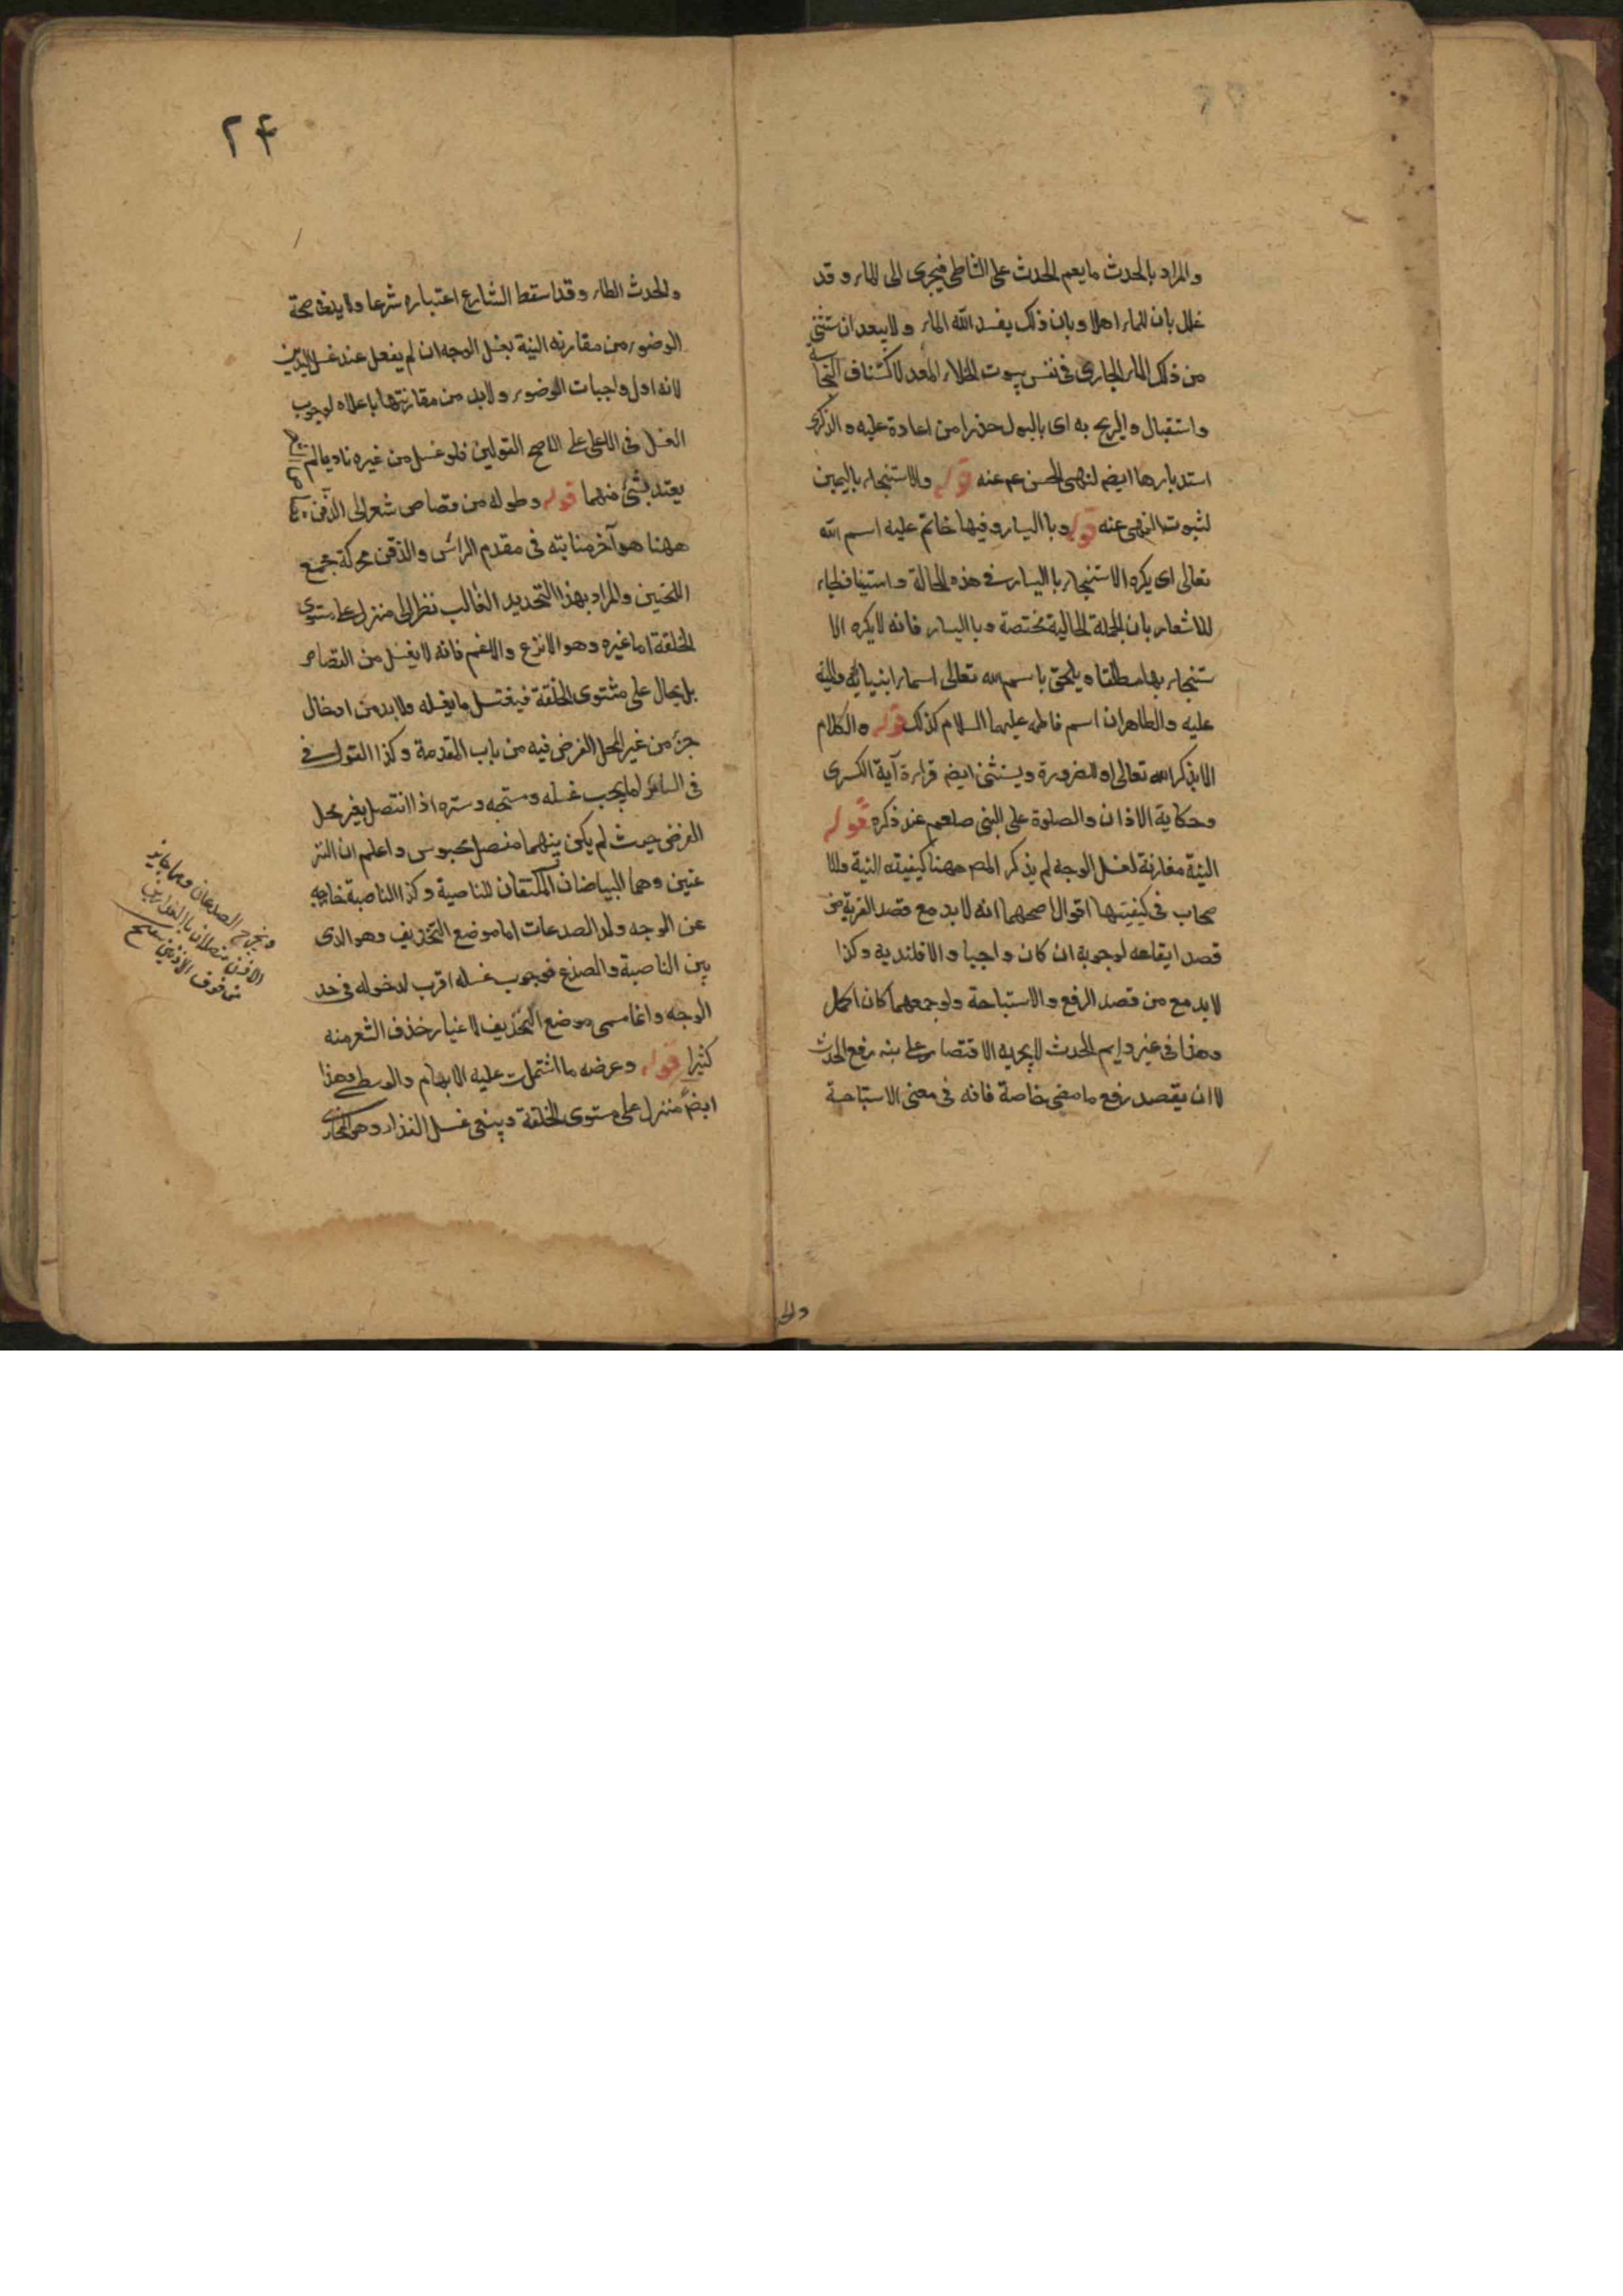 والمراد بالحدث ما يعم الحدث على الشاطى فيجرى الى الماء وقد
علل بان للماء اهلا وبان ذلك يفسد الله الماء ولا يبعد ان تثنى
من ذلك الماء الجارى فى نفس بيوت الخلاء المعد لاكتناف النجاسة
واستقبال والريح به اى بالبول حذرا من اعادة عليه والذكرى
استدبارها ايضم لنهى الحسن عم عنه قوله والاستنجاء باليمين
لثبوت النهى عنه قوله وبا اليسار وفيها خاتم عليه اسم الله
تعالى اى يكره الاستنجاء با اليسار فى هذه الحالة واستينا فلياء
للاشعار بان الجملة الحالية مختصة وبا اليسار فانه لا يكره الا
ستنجاء بها مطلقا ويلحق باسم الله تعالى اسماء انبيائه
عليه والطاهران اسم فاطمه عليهما السلام كذلك قوله والكلام
الا بذكر الله تعالى او الضرورة ويستثنى ايضم قراءة آية الكرسى
وحكاية الاذان والصلوة على النبى صلعم عند ذكره قوله
النية مقارنة لغسل الوجه لم يذكر المص ههنا كيفيته النية وللا
صحاب فى كيفيتها اقوال اصحهما انه لابد مع قصد القربة من
قصد ايقاعه لوجوبة ان كان واجبا والا فلندبه وكذا
لابد مع من قصد الرفع والاستباحة ولو جمعهما كان اكمل
وهذا فى غير دايم الحدث لا يجزيه الاقتصار على بنه رفع الحدث
لا ان يقصد رفع ما مضى خاصة فانه فى معنى الاستباحة
والح
٢٤
والحدث الطاء وقد اسقط الشارع اعتباره شرعا ولا ينفى صحة
الوضوء من مقارنه النية بغسل الوجه ان لم يفعل عند غسل اليدين
لانه اول واجبات الوضوء ولابد من مقارنتها باعلاه لوجوب
الغسل فى الاعلى على الاصح القولين فلو غسل من غيره ناويا لم
يعتد بشئ منهما قوله وطوله من قصاص شعر الى الذقن
ههنا هو آخر منابته فى مقدم الراس والذقن محركة مجمع
اللحتين والمراد بهذا التحديد الغالب نظر الى منزل على مستوى
الخلقة اما غيره وهو الانزع والاغم فانه لا يغسل من القصاص
بل يحال على مثتوى الخلقة فيغتسل ما يغسله ولابد من ادخال
جزء من غير المحل الفرض فيه من باب المقدمة وكذا القول فى
فى السائر لما يجب غسله ومسحه وستره اذا انتصل بغير محل
الفرض حيث لم يكن بينهما منفصل محبوس واعلم ان النز
عتين وهما البياضان المكتنفان للناصية وكذا الناصية خارجه
عن الوجه ولد الصدعات اما موضع التحذيف وهو الذى
بين الناصية والصدغ فوجوب غسله اقرب لدخوله فى حد
الوجه وانما سمى موضع التحذيف لاعتبار حذف الشعر منه
كثيرا قوله وعرضه ما اشتملت عليه الابهام والوسطى وهذا
ايضم منزل على مستوى الخلقة وينبغى غسل العذار وهو المحاذى
ويخرج الصدغان وهما
الاذن متصلان بالعذارين
من فوق الاذنين